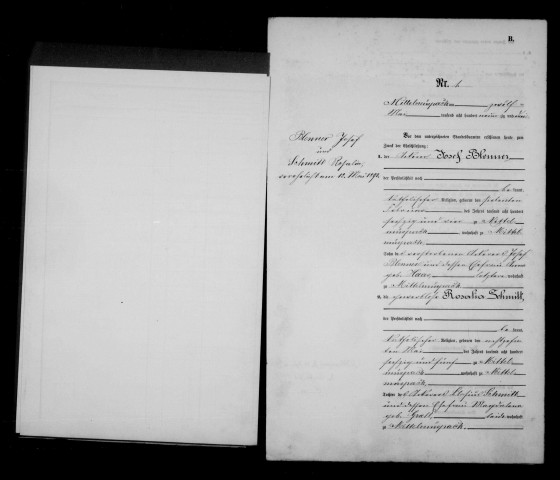 B.
Nr. 1.
Mittelmuespach zwölf
Mai tausend acht hundert neunzig und
Blenner Josef
und
Schmitt Rosalia
verehelicht am 12. Mai
Vor dem unterzeichneten Standesbeamten erschienen heute, zum
Zweck der Eheschließung:
1. der Ackerer Josef Blenner
der Persönlichkeit nach
be kannt,
katholischer Religion, geboren den siebenten
Februar des Jahres tausend acht hundert
sechzig und vier zu Mittel
muespach, wohnhaft zu Mittel
muespach
Sohn des verstorbenen Ackerers Josef
Blenner und dessen Ehefrau
geb. Haas letztere wohnhaft
zu Mittelmuespach
2. die gewerblose Rosalia Schmitt,
der Persönlichkeit nach
be kannt,
katholischer Religion, geboren den
ten Mai des Jahres tausend acht hundert
sechzig und fünf zu Mittel
muespach, wohnhaft zu Mittel
muespach
Tochter des Ackerers Schmitt
und dessen Ehefrau Magdalena
geb. beide wohnhaft
zu Mittelmuespach